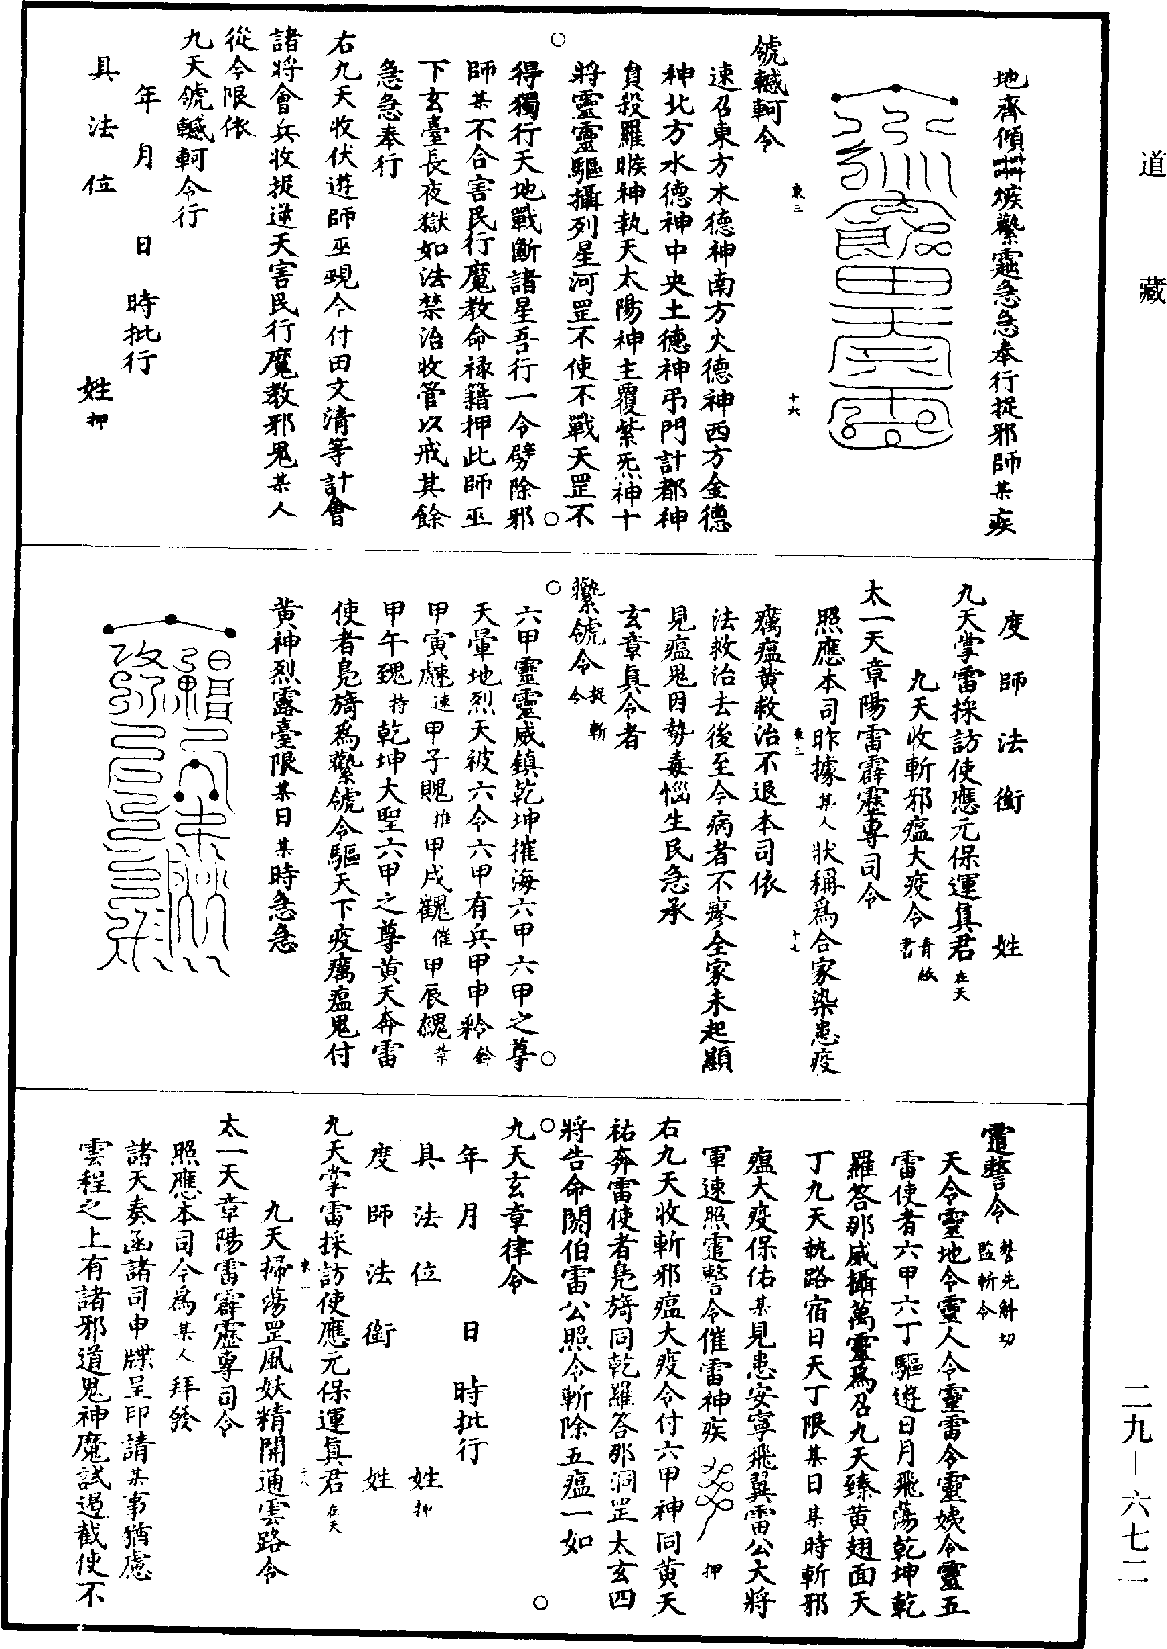 道藏
地齊傾瘯繫靈急急奉行捉邪師某疾
號轗軻令
速召東方木德神南方火德神西方金德
神北方水德神中央土德神弔門計都神
負殺羅睺神執天太陽神主覆紫炁神十
將靈靈驅攝列星河罡不使不戰天罡不
得獨行天地戰斷諸星吾行一令劈除邪
師某不合害民行魔教命祿籍押此師巫
下玄臺長夜獄如法禁治收管以戒其餘
急急奉行
右九天收伏遊師巫覡令付田文清等計會
諸將會兵收捉逆天害民行魔教邪鬼某人
從令限依
九天號轗軻令行
年月日時批行
具法位姓押
度師法銜姓
九天掌雷採訪使應元保運真君在天
九天收斬邪瘟大疫令青紙書
太一天章陽雷霹靂專司令
照應本司昨據某人狀稱爲合家染患疫
癘瘟黄救治不退本司依
法救治去後至今病者不瘳全家未起顯
見瘟鬼因勢毒惱生民急承
玄章真令者
繫號令捉斬令
六甲靈靈威鎮乾坤摧海六甲六甲之尊
天暈地烈天被六令六甲有兵甲申
甲寅速甲子甲戌催甲辰
甲午持乾坤大聖六甲之尊黄天奔雷
使者鳧旖爲繫號令驅天下疫癘瘟鬼付
黄神烈露臺限某日某時急急
霆警令監斬令
天令靈地令靈人令靈雷令靈姨令靈五
雷使者六甲六丁驅遊日月飛蕩乾坤乾
羅答那威攝萬靈爲召九天臻黄翅面天
丁九天執路宿日天丁限某日某時斬邪
瘟大疫保佑某見患安寧飛翼雷公大將
軍速照霆警令催雷神疾押
右九天收斬邪瘟大疫令付六甲神同黄天
祐奔雷使者鳧旖同乾羅答那洞罡太玄四
將告命閼伯雷公照令斬除五瘟一如
九天玄章律令
年月日時批行
具法位姓押
度師法銜姓
九天掌雷採訪使應元保運真君在天
九天掃蕩罡風妖精開通雲路令
太一天章陽雷霹靂專司令
照應本司今爲某人拜發
諸天奏函諸司申牒呈印請某事猶慮
雲程之上有諸邪道鬼神魔試過截使不
二九-六七二